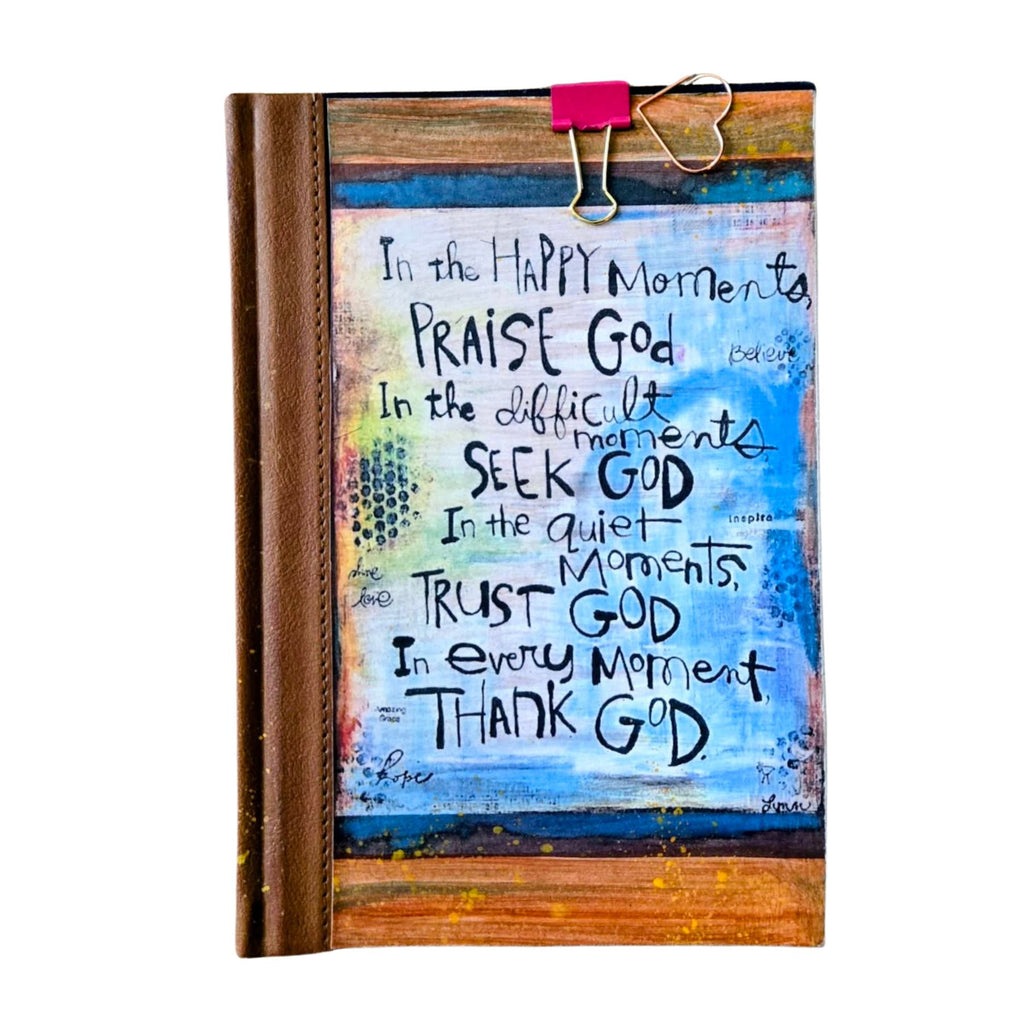 In the HAPPY Moments,
PRAISE God
Believe
In the difficult
moments,
SEEK GOD
In the quiet
inspire
Moments,
shine
love
TRUST GOD
In every Moment,
THANK GOD.
Amazing
Grace
hope
Lynn